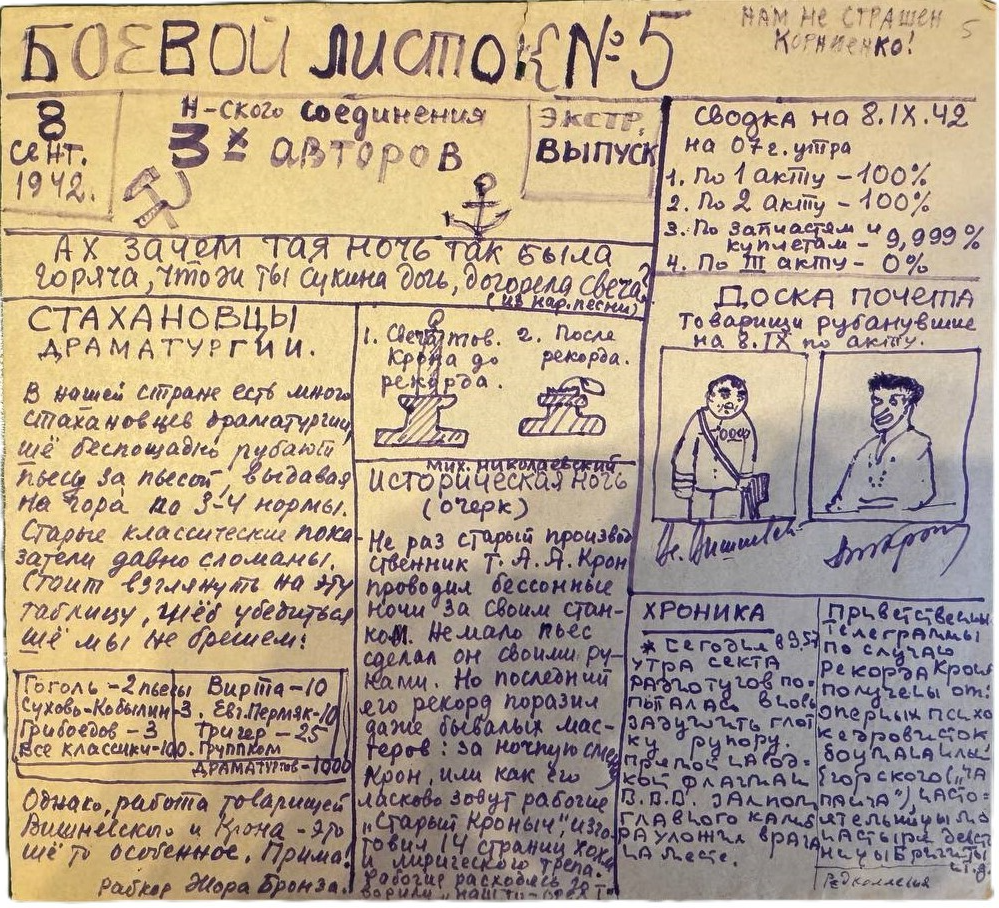 НАМ НЕ СТРАШЕН
КОРНИЕНКО!
5
БОЕВОЙ ЛИСТОК № 5
8
СЕНТ.
1942.
Н-СКОГО СОЕДИНЕНИЯ
3Х АВТОРОВ
ЭКСТР.
ВЫПУСК
АХ ЗАЧЕМ ТАЯ НОЧЬ ТАК БЫЛА
ГОРЯЧА, ЧТО ЖИ ТЫ СУКИНА ДОЧЬ, ДОГОРЕЛА СВЕЧА?
(ИЗ НАР. ПЕСНИ)
СВОДКА НА 8.IX.42
НА 07 г. УТРА
1. По 1 акту – 100%
2. По 2 акту – 100%
3. По запчастям и
куплетам – 9,999%
4. По III акту – 0%
ДОСКА ПОЧЕТА
Товарищи рубанувшие
на 8.IX по акту.
СТАХАНОВЦЫ
ДРАМАТУРГИИ.
В нашей стране есть много
стахановцев драматургии,
шё беспощадно рубают
пьесу за пьесой выдавая
на гора по 3-4 нормы.
Старые классические пока-
затели давно сломаны.
Стоит взглянуть на эту
таблицу, штёб убедиться
шё мы не брешем:
Гоголь – 2 пьесы
Сухово-Кобылин – 3.
Грибоедов – 3
Все классики – 100.
Вирта – 10
Евг. Пермяк – 10
Тригер – 25
Группком
драматургов – 1000
Однако, работа товарищей
Вишневского и Крона – это
шё то особенное. Прима!
Рабкор Жора Бронза.
1. Свеча тов.
Крона до
рекорда.
2. После
рекорда.
Мих. Николаевский
ИСТОРИЧЕСКАЯ НОЧЬ
(очерк)
Не раз старый производ
ственник Т. А. А. Крон
проводил бессонные
ночи за своим стан-
ком. Немало пьес
сделал он своими ру-
ками. Но последний
его рекорд поразил
даже бывалых мас-
теров: за ночную смену
Крон, или как его
ласково зовут рабочие
„Старый Кроныч", изго-
товил 14 страниц хохм
и лирического трепа.
Рабочие расходясь
ООФ
ХРОНИКА
* Сегодня в 9.57
утра секта
радиотугов по-
пыталась вновь
задушить глот
ку рупору.
Прямой наход-
кой флагман
В.В.В. залпом
главного калиб
ра уложил врага
на месте.
Приветственны
телеграммы
по случаю
рекорда Крона
получены от:
оперных психо
Редколлегия